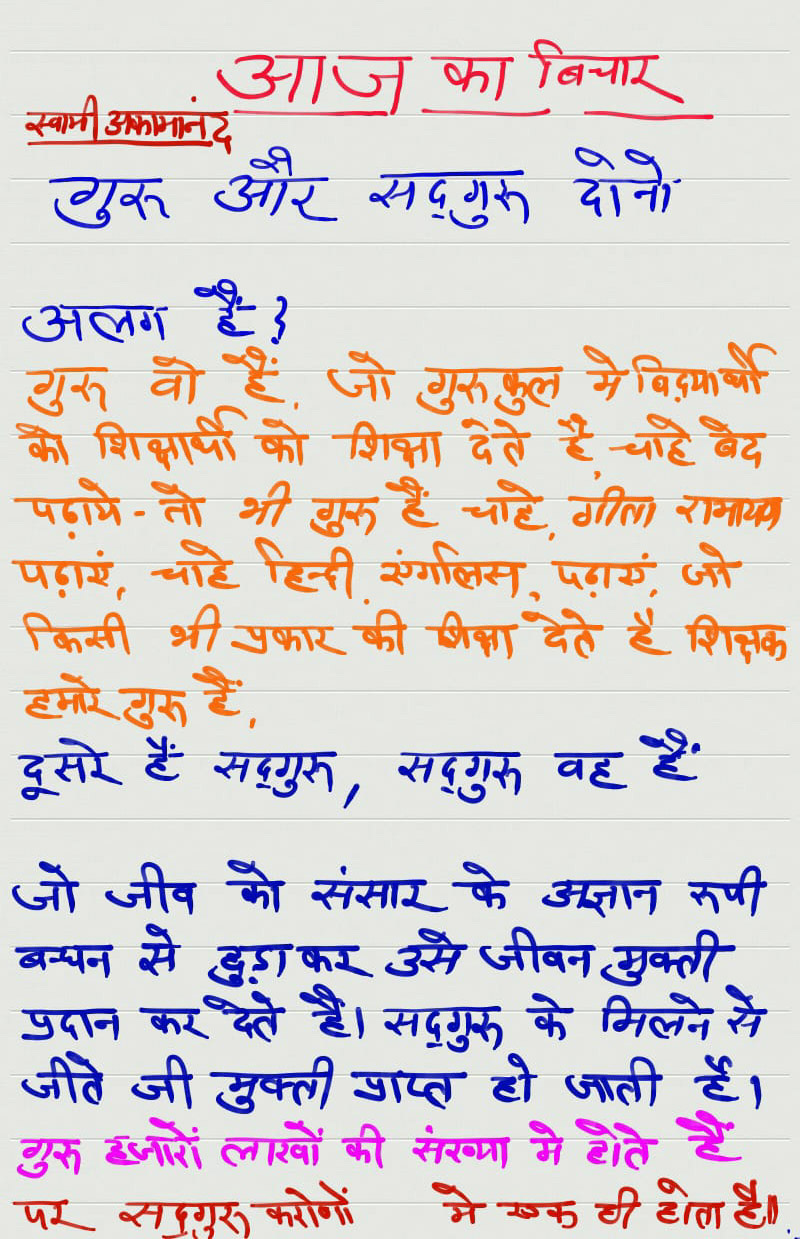 आज का बिचार
स्वामी अकामानंद
गुरू और सद्गुरू दोनो
अलग हैं?
गुरू वो हैं, जो गुरूकुल मे विद्यार्थी
को शिक्षार्थी को शिक्षा देते हैं, चाहे बेद
पढ़ाये - तो भी गुरू हैं चाहे, गीता रामायण
पढ़ाएं, चाहे हिन्दी, एंगलिस, पढ़ाएं, जो
किसी भी प्रकार की शिक्षा देते है शिक्षक
हमारे गुरू हैं,
दूसरे हैं सद्गुरू, सद्गुरू वह हैं
जो जीव को संसार के अज्ञान रूपी
बन्धन से छुड़ा कर उसे जीवन मुक्ती
प्रदान कर देते हैं। सद्गुरू के मिलने से
जीते जी मुक्ती प्राप्त हो जाती है।
गुरू हजारों लाखों की संख्या मे होते हैं
पर सद्गुरू करोणों मे एक ही होता है॥